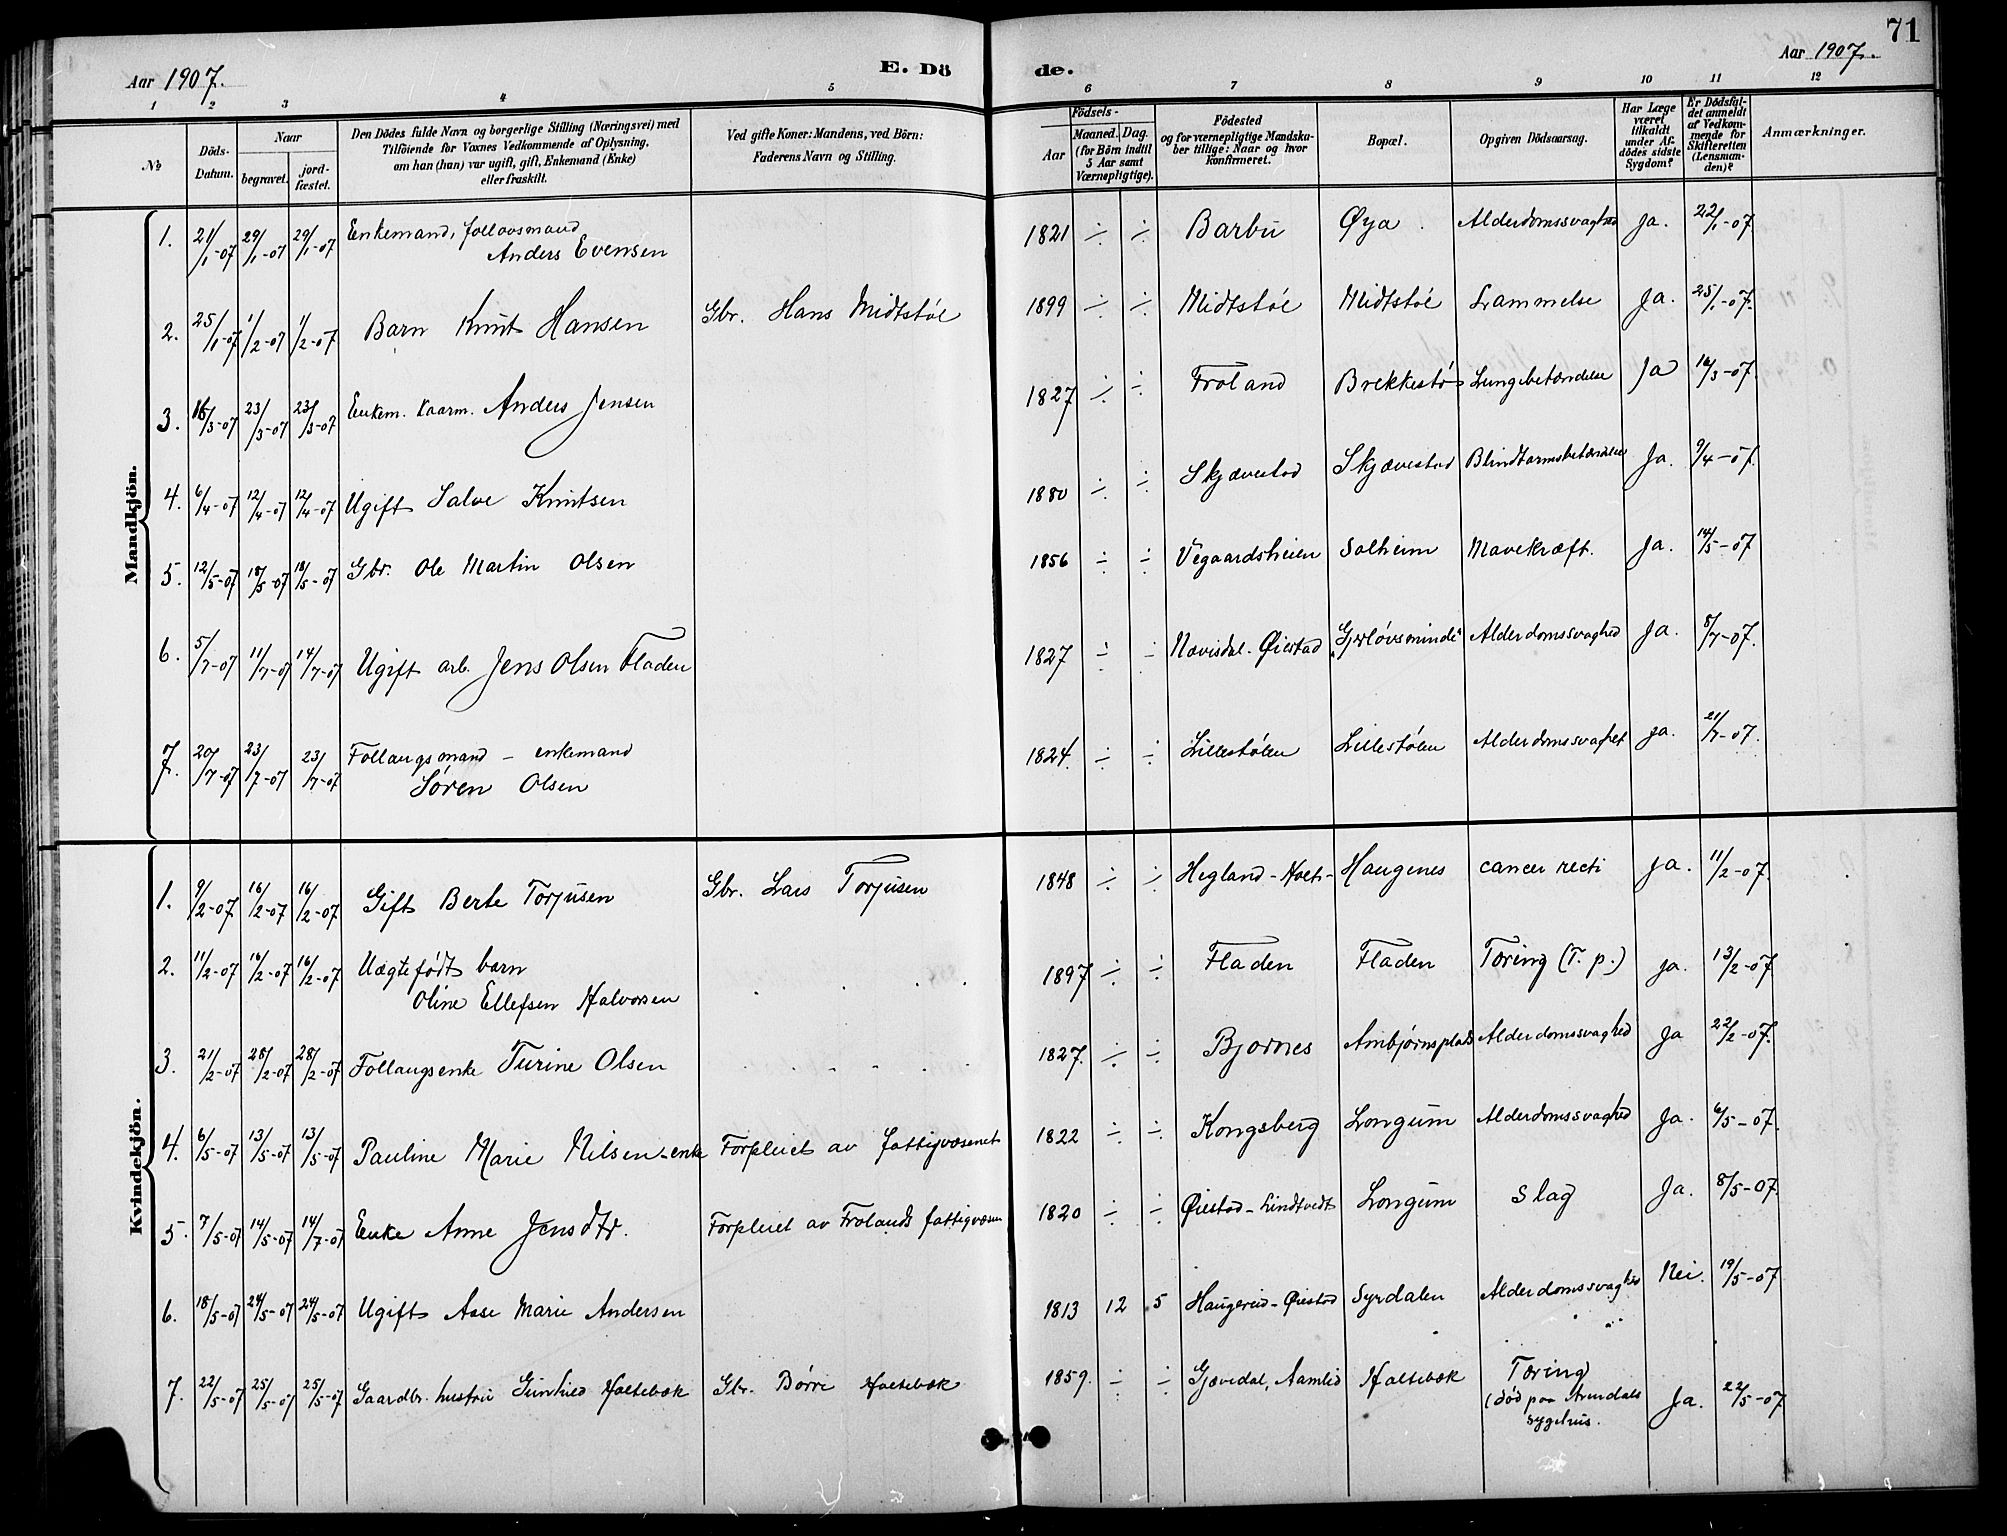 71
Aar 1907.
E. Dö
de.
Aar 1907.
1 2 3 4 5 6 7 8 9 10 11 12
№
Döds-Datum.
Naar
begravet.
jord-fæstet.
Den Dödes fulde Navn og borgerlige Stilling (Næringsvei) med
Tilföiende for Voxnes Vedkommende af Oplysning,
om han (han) var ugift, gift, Enkemand (Enke)
eller fraskilt.
Ved gifte Koner: Mandens, ved Börn:
Faderens Navn og Stilling.
Födsels-
Aar
Maaned. Dag.
(for Börn indtil
5 Aar samt
Værnepligtige).
Födested
og for værnepligtige Mandska-
ber tillige: Naar og hvor
Konfirmeret.
Bopæl.
Opgiven Dödsaarsag.
Har Læge
været
tilkaldt
under Af-
dödes sidste
Sygdom?
Er Dödsfal-
det anmeldt
af Vedkom-
mende for
Skifteretten
(Lensman-
den)?
Anmærkninger.
Mandkjön.
1. 21/1-07 29/1-07 29/1-07 Enkemand, follovsmand
Anders Evensen 1821 ÷ ÷ Barbu Øya Alderdomssvaghed Ja. 22/1-07
2. 25/1-07 1/2-07 1/2-07 Barn Knut Hansen Gbr. Hans Midtstøl 1899 ÷ ÷ Midtstøl Midtstøl Lammelse Ja. 25/1-07.
3. 16/3-07 23/3-07 23/3-07 Enkem. kaarm. Anders Jensen 1827 ÷ ÷ Froland Brekkestø Lungebetændelse Ja 16/3-07.
4. 6/4-07 12/4-07 12/4-07 Ugift Salve Knutsen 1880 ÷ ÷ Skjævestad Skjævestad Blindtarmsbetændelse Ja. 9/4-07.
5. 12/5-07 18/5-07 18/5-07 Gbr. Ole Martin Olsen 1856 ÷ ÷ Vegaardsheien Solheim Mavekræft. Ja. 14/5-07
6. 5/7-07 11/7-07 14/7-07 Ugift arb. Jens Olsen Fladen 1827 ÷ ÷ Nævisdal-Øiestad "Gjerløvsminde" Alderdomssvaghed Ja. 8/7-07.
7. 20/7-07 23/7-07 23/7-07 Follaugsmand - enkemand
Søren Olsen 1824. ÷ ÷ Lillestølen Lillestølen Ja. 21/7-07.
Kvindekjön.
1. 9/2-07 16/2-07 16/2-07 Gift Berte Torjusen Gbr. Lars Torjusen 1848 ÷ ÷ Hegland-Holt- Haugenes cancer recti Ja. 11/2-07.
2. 11/2-07 16/2-07 16/2-07 Uægtefødt barn
Oline Ellefsen Halvorsen 1897 ÷ ÷ Fladen Fladen Tæring (T. p.) Ja. 13/2-07
3. 21/2-07 28/2-07 28/2-07 Follaugsenke Turine Olsen 1827. ÷ ÷ Bjornes Ambjørnsplads Alderdomssvaghed Ja 22/2-07.
4. 6/5-07 13/5-07 13/5-07 Pauline Marie Nilsen-enke Forpleiet av fattigvæsenet 1822 ÷ ÷ Kongsberg Longum Alderdomssvaghed Ja. 6/5-07.
5. 7/5-07 14/5-07 14/7-07 Enke Anne Jensdtr. Forpleiet av Frolands fattigvæsen 1820 ÷ ÷ Øiestad-Lindtvedt Longum Slag Ja. 8/5-07.
6. 18/5-07 24/5-07 24/5-07 Ugift Aase Marie Andersen 1813 12 5 Haugereid-Øiestad Syrdalen Alderdomssvaghed Nei. 19/5-07
7. 22/5-07 25/5-07 25/5-07 Gaardbr. hustru Gunhild Holtebæk Gbr. Børre Holtebæk 1859. ÷ ÷ Gjøvedal, Aamlid Holtebæk Tæring
(død paa Arendals
sygehus. Ja. 22/5-07